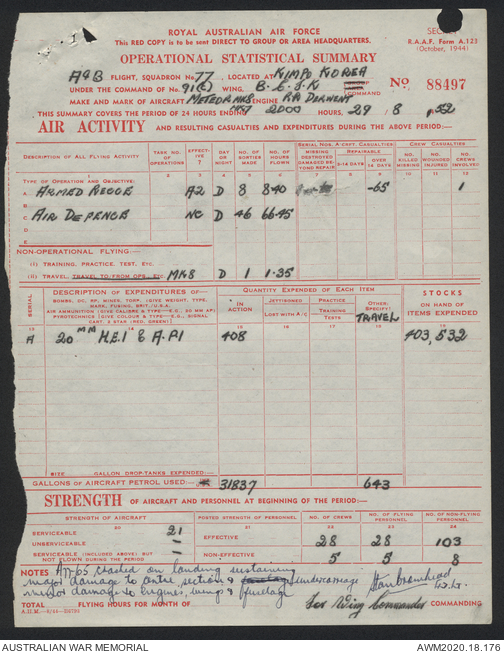 ROYAL AUSTRALIAN AIR FORCE
This RED COPY is to be sent DIRECT TO GROUP OR AREA HEADQUARTERS.
R.A.A.F. Form A.123
(October, 1944)
OPERATIONAL STATISTICAL SUMMARY
A&B FLIGHT, SQUADRON No. 77, LOCATED AT KIMPO KOREA
UNDER THE COMMAND OF No. 91(C) WING, COMMAND No 88497
MAKE AND MARK OF AIRCRAFT METEOR MK8 ENGINE RR DERWENT
THIS SUMMARY COVERS THE PERIOD OF 24 HOURS ENDING 2000 HOURS, 29 / 8 / 52
AIR ACTIVITY AND RESULTING CASUALTIES AND EXPENDITURES DURING THE ABOVE PERIOD:—
DESCRIPTION OF ALL FLYING ACTIVITY TASK NO. OF OPERATIONS EFFECTIVE ? DAY OR NIGHT NO. OF SORTIES MADE NO. OF HOURS FLOWN SERIAL NOS. A'CRFT. CASUALTIES CREW CASUALTIES
MISSING DESTROYED DAMAGED BEYOND REPAIR REPAIRABLE 5-14 DAYS OVER 14 DAYS NO. KILLED MISSING NO. WOUNDED INJURED NO. CREWS INVOLVED
1 2 3 4 5 6 7 8 9 10 11 12
TYPE OF OPERATION AND OBJECTIVE:
A ARMED RECCE A2 D 8 8·40 -65 1
B
C AIR DEFENCE NC D 46 66·45
D
E
NON-OPERATIONAL FLYING:—
(i) TRAINING, PRACTICE, TEST, ETC.
(ii) TRAVEL, TRAVEL TO/FROM OPS., ETC. MK8 D 1 1·35
SERIAL DESCRIPTION OF EXPENDITURES OF— QUANTITY EXPENDED OF EACH ITEM STOCKS
BOMBS, DC, RP, MINES, TORP. (GIVE WEIGHT, TYPE, MARK, FUSING, BRIT./U.S.A.)
AIR AMMUNITION (GIVE CALIBRE & TYPE—E.G., 20 MM AP)
PYROTECHNICS (GIVE COLOUR & TYPE—E.G., SIGNAL CART. 2 STAR (RED, GREEN)]
IN ACTION JETTISONED LOST WITH A/C PRACTICE Training Tests OTHER (SPECIFY) TRAVEL ON HAND OF ITEMS EXPENDED
13 14 15 16 17 18 19
A 20 MM H.E.I & A.P.I 408 403,532
SIZE GALLON DROP-TANKS EXPENDED:—
GALLONS OF AIRCRAFT PETROL USED:— 31837 643
STRENGTH OF AIRCRAFT AND PERSONNEL AT BEGINNING OF THE PERIOD:—
STRENGTH OF AIRCRAFT 20 POSTED STRENGTH OF PERSONNEL 21 NO. OF CREWS 22 NO. OF FLYING PERSONNEL 23 NO. OF NON-FLYING PERSONNEL 24
SERVICEABLE 21 EFFECTIVE 28 28 103
UNSERVICEABLE —
SERVICEABLE (INCLUDED ABOVE) BUT NOT FLOWN DURING THE PERIOD — NON-EFFECTIVE 5 5 8
NOTES A77-65 crashed on landing sustaining
major damage to centre section & undercarriage
minor damage to engines, wings & fuselage
TOTAL FLYING HOURS FOR MONTH OF for Wing Commander COMMANDING
AUSTRALIAN WAR MEMORIAL AWM2020.18.176